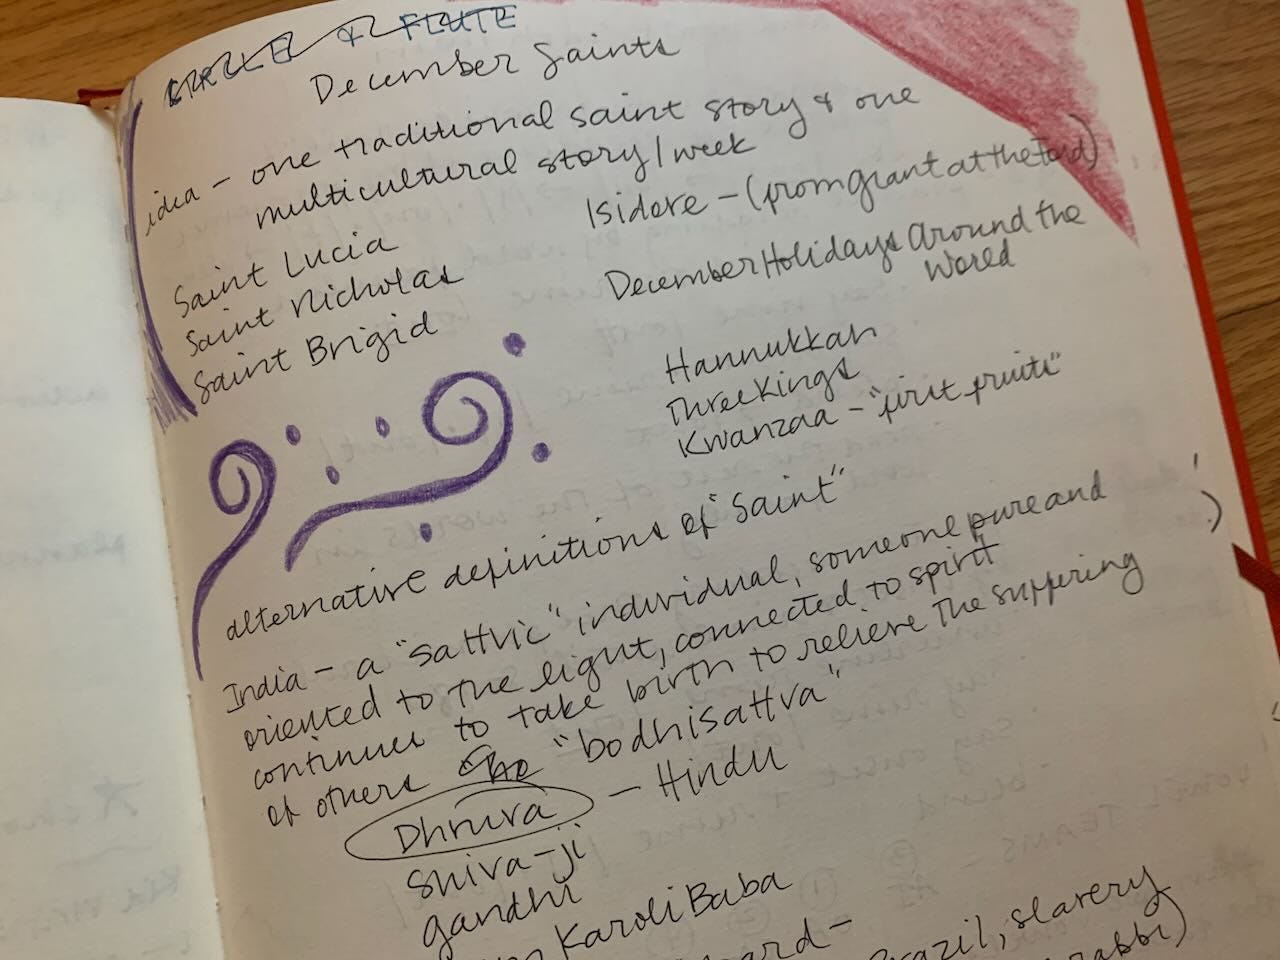 & FLUTE
December Saints
idea - one traditional saint story & one
multicultural story/week
Isidore - (from giant at the ford)
Saint Lucia
Saint Nicholas
Saint Brigid
December Holidays Around the
World
Hannukkah
Three Kings
Kwanzaa - "first fruits"
alternative definitions of "Saint"
India - a "sattvic" individual, someone pure and
oriented to the light, connected to spirit
continues to take birth to relieve the suffering
of others "bodhisattva"
Dhruva - Hindu
Shiva-ji
gandhi
Karoli Baba
Brazil, slavery
rabbi)